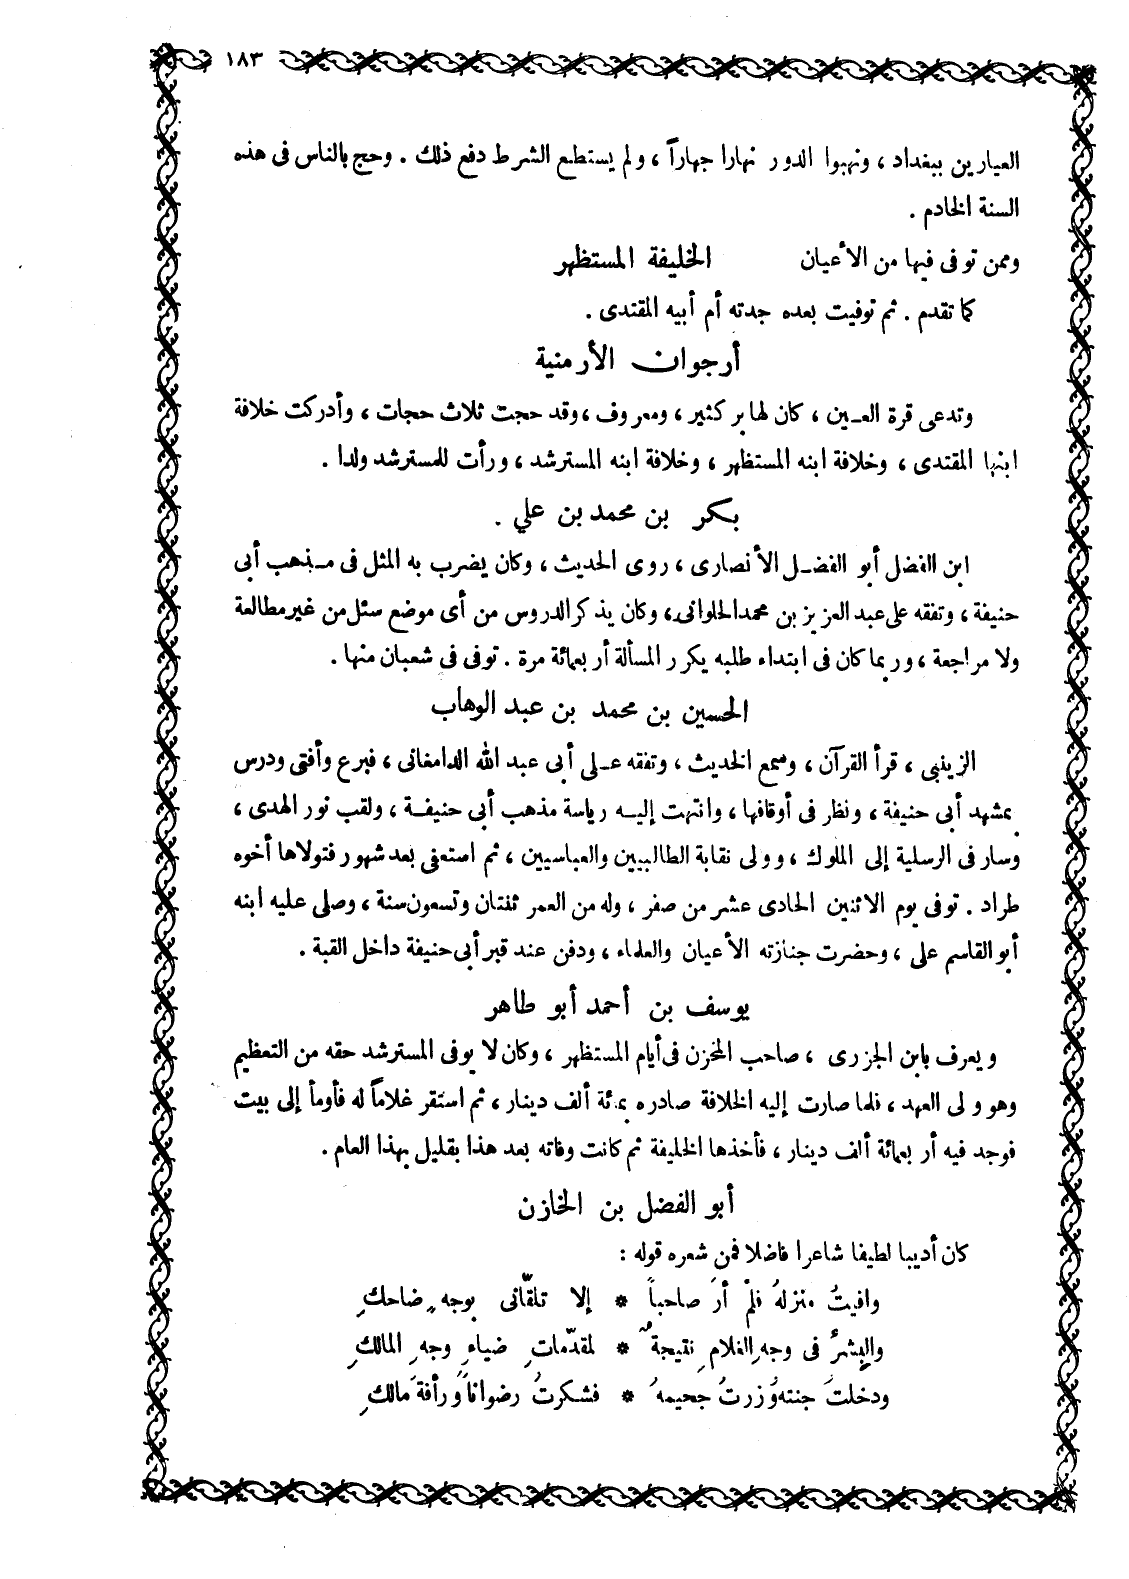 ١٨٣
العيارين ببغداد ، ونهبوا الدور نهارا جهاراً ، ولم يستطع الشرط دفع ذلك . وحج بالناس فى هذه
السنة الخادم .
وممن توفى فيها من الأعيان الخليفة المستظهر
كما تقدم . ثم توفيت بعده جدته أم أبيه المقتدى .
أرجوان الأرمنية
وتدعى قرة العـين ، كان لها بر كثير ، ومعروف ، وقد حجت ثلاث حجات ، وأدركت خلافة
ابنها المقتدى ، وخلافة ابنه المستظهر ، وخلافة ابنه المسترشد ، ورأت للمسترشد ولدا .
بكر بن محمد بن علي .
ابن الفضل أبو الفضـل الأنصارى ، روى الحديث ، وكان يضرب به المثل فى مـذهب أبى
حنيفة ، وتفقه على عبد العزيز بن محمد الحلوانى ، وكان يذكر الدروس من أى موضع سئل من غير مطالعة
ولا مراجعة ، وربما كان فى ابتداء طلبه يكرر المسألة أربعمائة مرة . توفى فى شعبان منها .
الحسين بن محمد بن عبد الوهاب
الزينبى ، قرأ القرآن ، وسمع الحديث ، وتفقه عـلى أبى عبد الله الدامغانى ، فبرع وأفتى ودرس
بمشهد أبى حنيفة ، ونظر فى أوقافها ، وانتهت إليـه رياسة مذهب أبى حنيفـة ، ولقب نور الهدى ،
وسار فى الرسلية إلى الملوك ، وولى نقابة الطالبيين والعباسيين ، ثم استعفى بعد شهور فتولاها أخوه
طراد . توفى يوم الاثنين الحادى عشر من صفر ، وله من العمر ثنتان وتسعون سنة ، وصلى عليه ابنه
أبو القاسم على ، وحضرت جنازته الأعيان والعلماء ، ودفن عند قبر أبى حنيفة داخل القبة .
يوسف بن أحمد أبو طاهر
ويعرف بابن الجزرى ، صاحب المخزن فى أيام المستظهر ، وكان لا يوفى المسترشد حقه من التعظيم
وهو ولى العهد ، فلما صارت إليه الخلافة صادره بمائة ألف دينار ، ثم استقر غلاماً له فأومأ إلى بيت
فوجد فيه أربعمائة ألف دينار ، فأخذها الخليفة ثم كانت وفاته بعد هذا بقليل بهذا العام .
أبو الفضل بن الخازن
كان أديبا لطيفا شاعرا فاضلا فمن شعره قوله :
وافيتُ منزلهُ فلمْ أرَ صاحباً * إلا تلقّانى بوجهٍ ضاحكِ
والبشرُ فى وجهِ الغلامِ نتيجةٌ * لمقدّماتِ ضياءِ وجهِ المالكِ
ودخلتَ جنتهُ وزرتُ جحيمهُ * فشكرتُ رضواناً ورأفةَ مالكِ